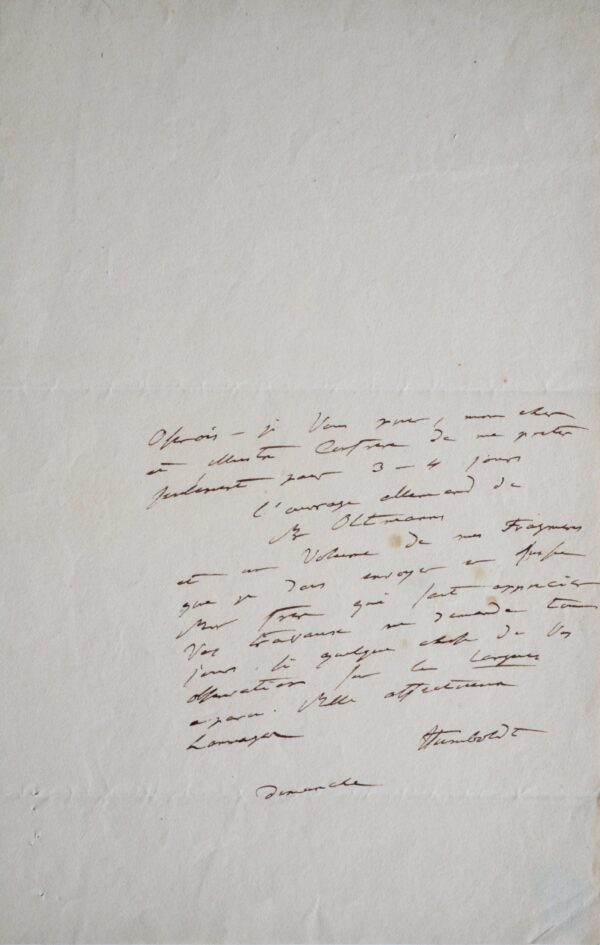 Oserois-je Vous prier, mon cher
et illustre Confrère de me preter
seulement pour 3-4 jours
l'ouvrage allemand de
Mr Oltmanns
et un Volume de mes Fragmens
que je dois envoyer en
Mon frere qui sait apprécier
Vos travaux me demande tous
jours si quelque chose de Vos
observations sur les langues
a paru. Mille affectueux
hommages
Humboldt
dimanche